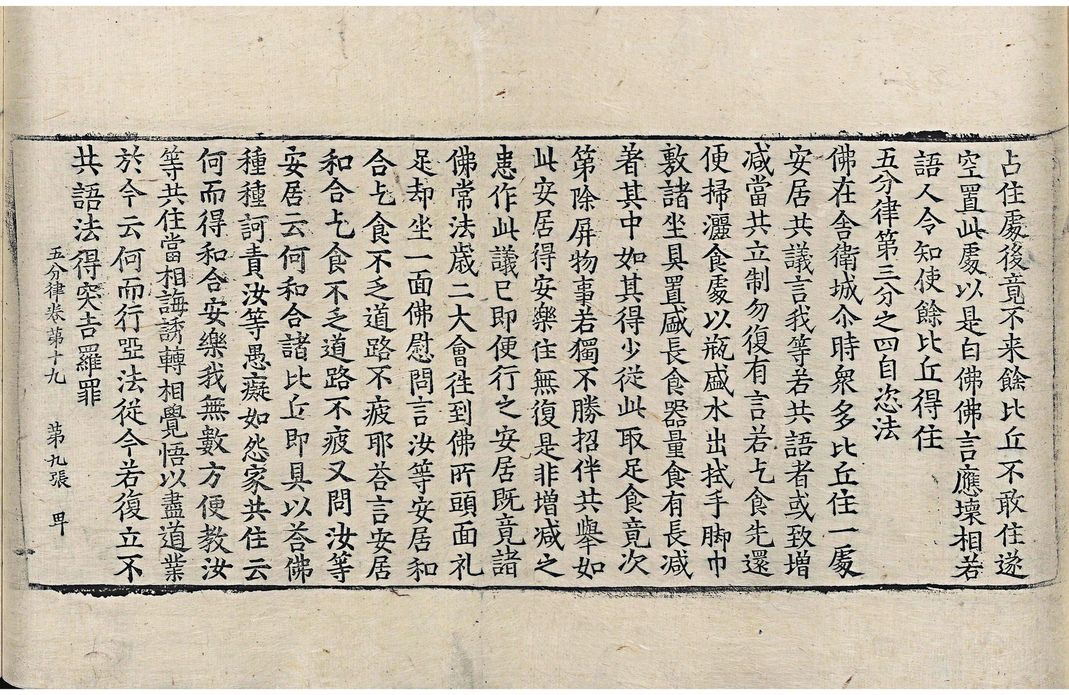 占住處後竟不来餘比丘不敢住遂
空置此處以是白佛佛言應壞相若
語人令知使餘比丘得住
五分律第三分之四自恣法
佛在舍衛城尒時衆多比丘住一處
安居共議言我等若共語者或致增
减當共立制勿復有言若乞食先還
便掃灑食處以瓶盛水出拭手脚巾
敷諸坐具置盛長食器量食有長减
著其中如其得少從此取足食竟次
第除屏物事若獨不勝招伴共舉如
此安居得安樂住無復是非增减之
恚作此議已即便行之安居既竟諸
佛常法歲二大會徃到佛所頭面礼
足却坐一面佛慰問言汝等安居和
合乞食不乏道路不疲耶荅言安居
和合乞食不乏道路不疲又問汝等
安居云何和合諸比丘即具以荅佛
種種訶責汝等愚癡如怨家共住云
何而得和合安樂我無數方便教汝
等共住當相誨誘轉相覺悟以盡道業
於今云何而行啞法從今若復立不
共語法得突吉羅罪
五分律卷第十九 第九張